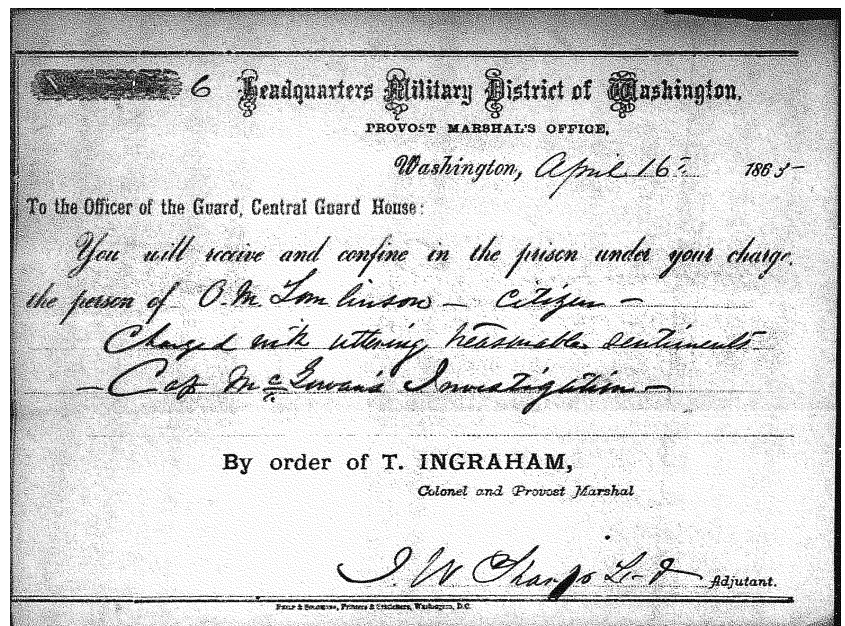 6 Headquarters Military District of Washington,
PROVOST MARSHAL'S OFFICE,
Washington, April 16th 1865
To the Officer of the Guard, Central Guard House:
You will receive and confine in the prison under your charge,
the person of O. M. Tomlinson – citizen –
Charged with uttering treasonable sentiments
– Cap McGowan's Investigation –
By order of T. INGRAHAM,
Colonel and Provost Marshal
Adjutant.
PHILP & SOLOMONS, Printers & Stationers, Washington, D.C.